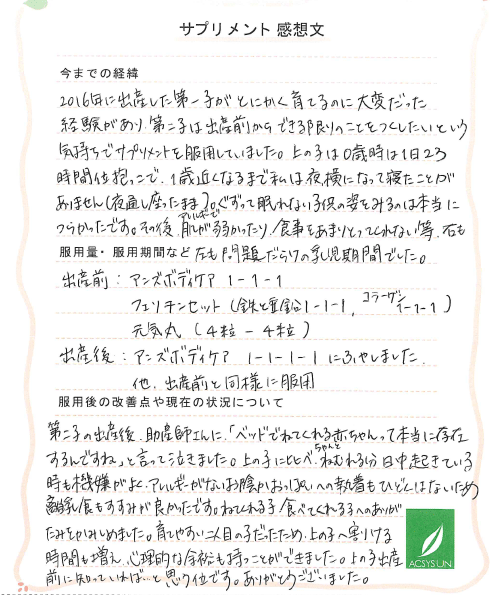 サプリメント 感想文
今までの経緯
2016年に出産した第一子がとにかく育てるのに大変だった
経験があり、第二子は出産前からできる限りのことをつくしたいという
気持ちでサプリメントを服用していました。上の子は0歳時は1日23
時間位抱っこで、1歳近くなるまで私は夜横になって寝たことが
ありません(夜通し座ったまま)。ぐずって眠れない子供の姿をみるのは本当に
つらかったです。その後、アレルギーで肌が弱かったり、食事をあまりとってくれない等、右も
服用量・服用期間など 左も問題だらけの乳児期間でした。
出産前:アンズボディケア 1-1-1
フェリチンセット(鉄と亜鉛1-1-1、コラーゲン1-1-1)
元気丸(4粒-4粒)
出産後:アンズボディケア 1-1-1-1 にふやしました。
他、出産前と同様に服用
服用後の改善点や現在の状況について
第二子の出産後、助産師さんに、「ベッドでねてくれる赤ちゃんって本当に存在
するんですね」と言って泣きました。上の子に比べ、ちゃんとねむれる分 日中起きている
時も機嫌がよく、アレルギーがないお陰かおっぱいへの執着もひどくはないため
離乳食もすすみが良かったです。ねてくれる子、食べてくれる子へのありが
たみをかみしめました。育てやすい二人目の子だったため、上の子へ割ける
時間も増え、心理的な余裕も持つことができました。上の子出産
前に知っていれば…と思う位です。ありがとうございました。
ACSYSUN